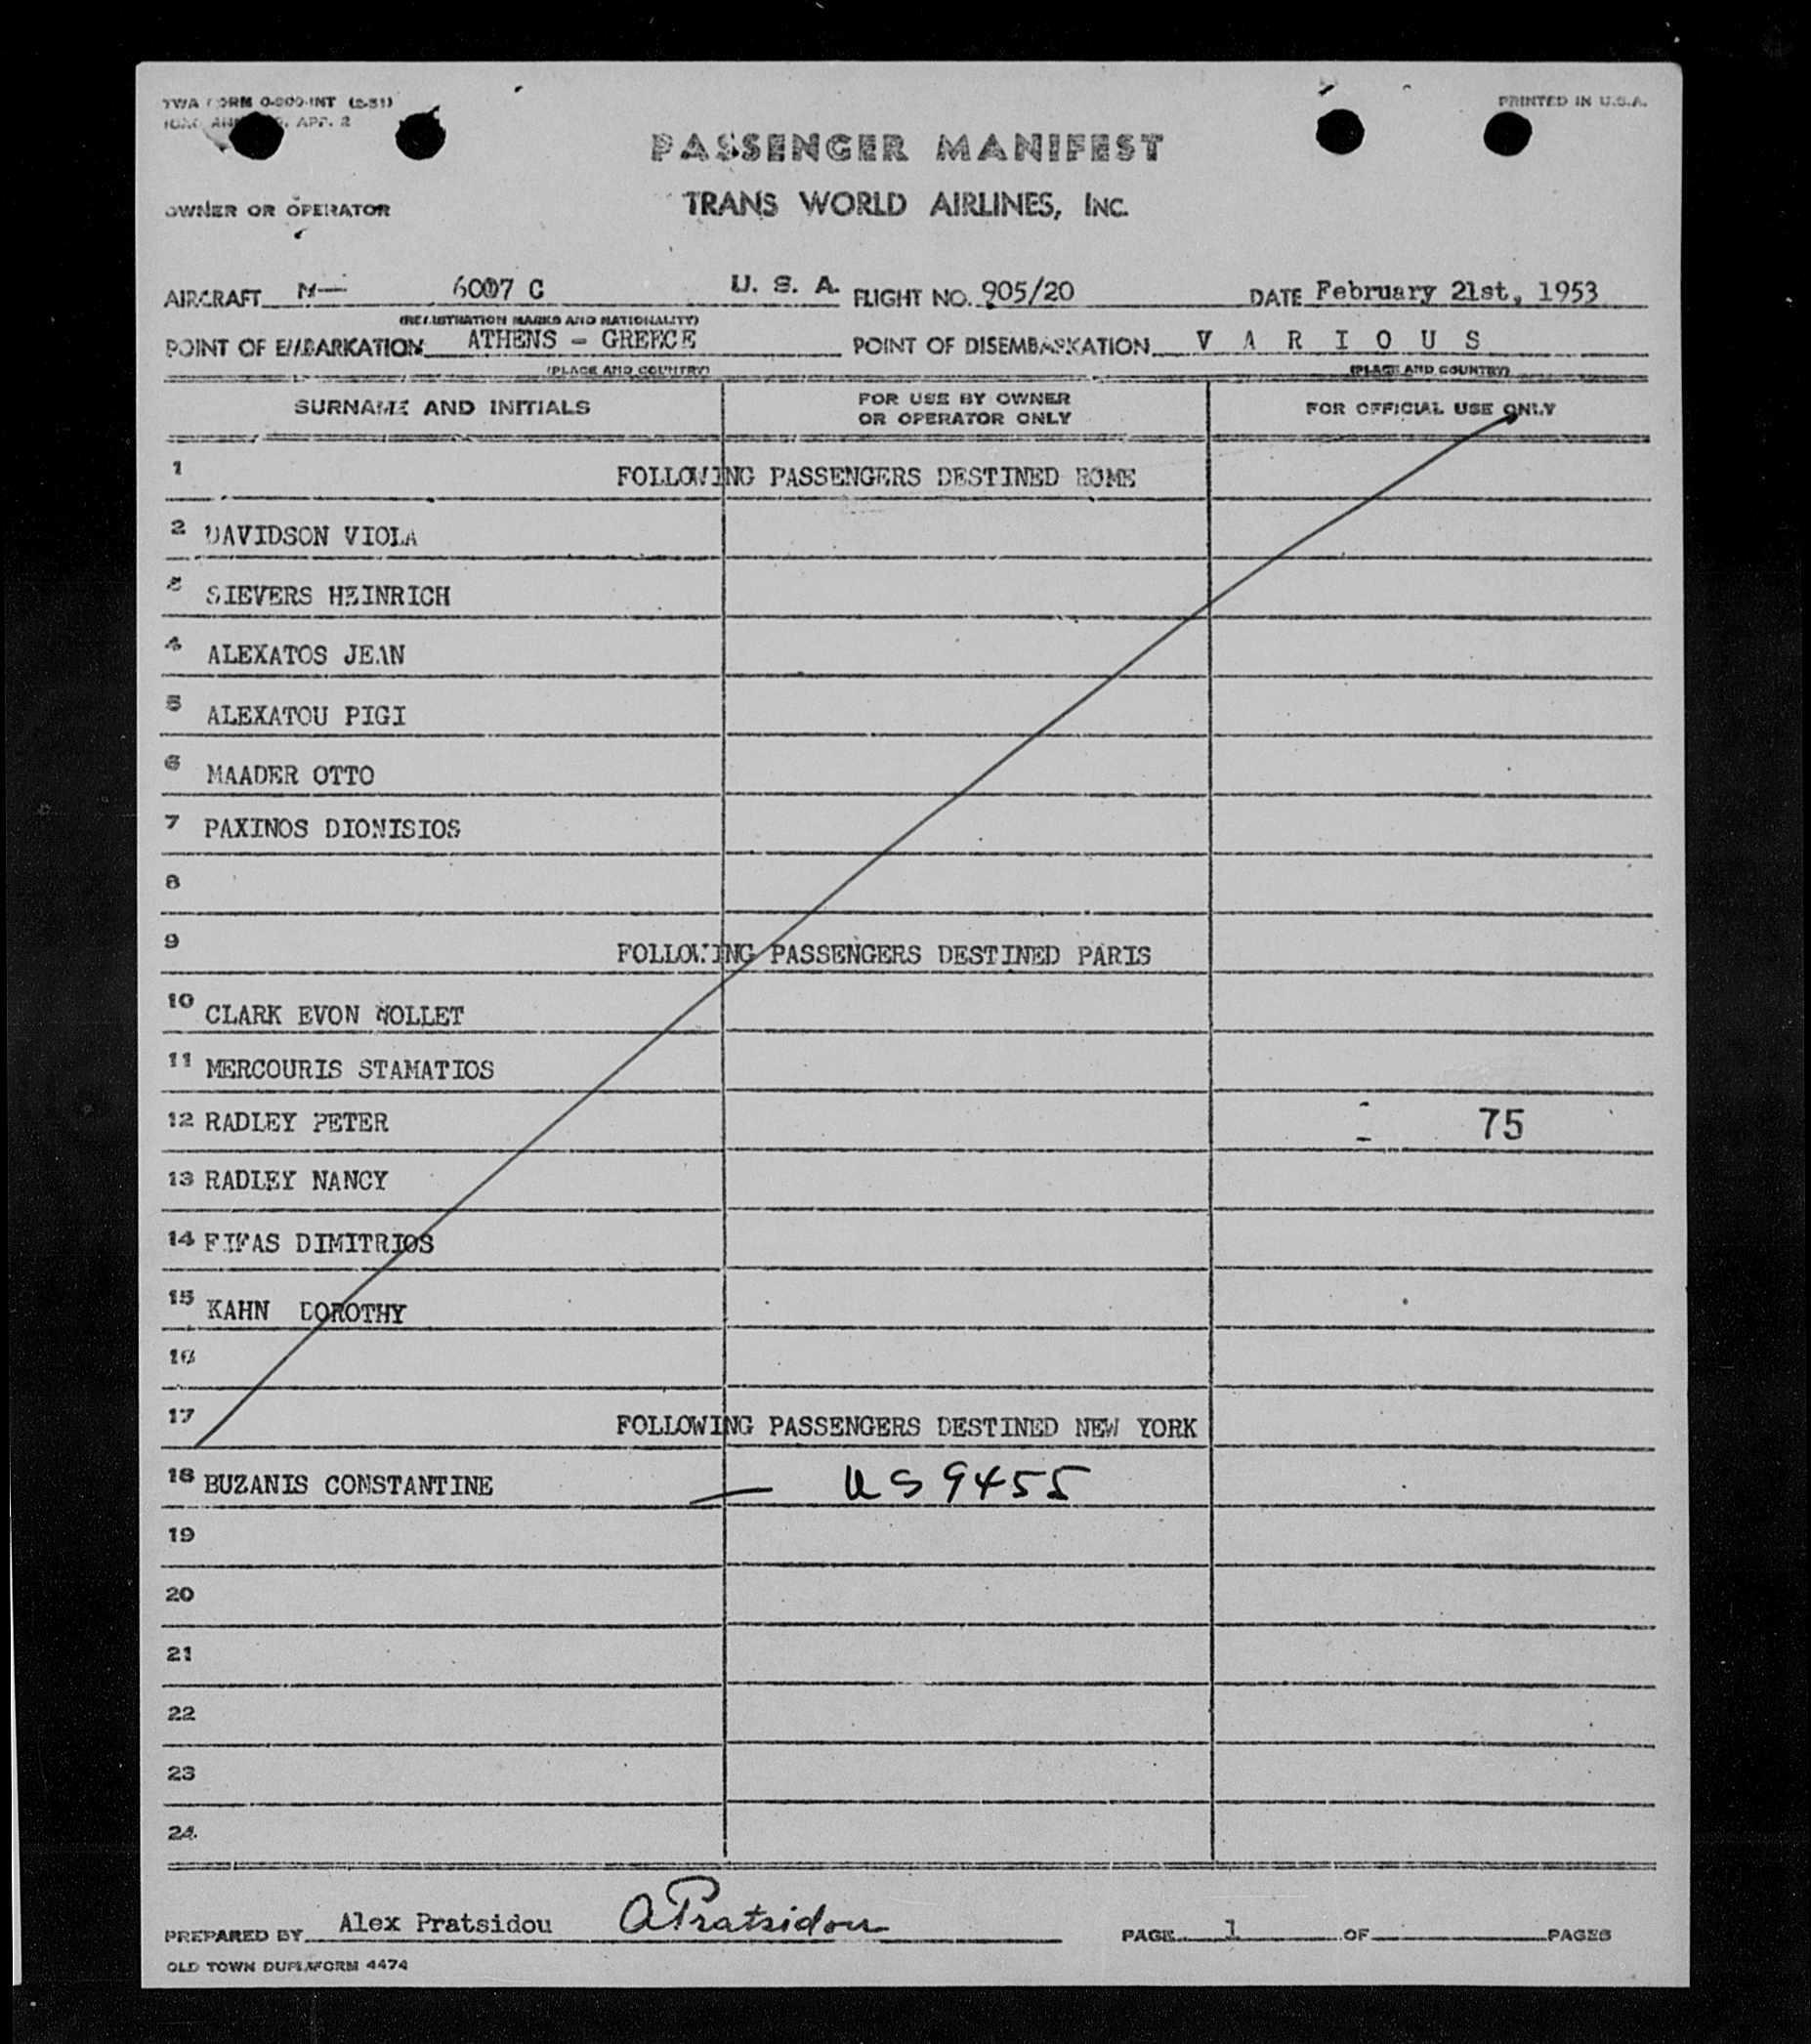 TWA FORM 0-200-INT (2-51)
PRINTED IN U.S.A.
APP. 2
PASSENGER MANIFEST
OWNER OR OPERATOR
TRANS WORLD AIRLINES, INC.
AIRCRAFT N— 6007 C U. S. A. FLIGHT NO. 905/20 DATE February 21st, 1953
(REGISTRATION MARKS AND NATIONALITY)
POINT OF EMBARKATION ATHENS - GREECE POINT OF DISEMBARKATION V A R I O U S
(PLACE AND COUNTRY) (PLACE AND COUNTRY)
SURNAME AND INITIALS FOR USE BY OWNER OR OPERATOR ONLY FOR OFFICIAL USE ONLY
1 FOLLOWING PASSENGERS DESTINED ROME
2 DAVIDSON VIOLA
3 SIEVERS HEINRICH
4 ALEXATOS JEAN
5 ALEXATOU PIGI
6 MAADER OTTO
7 PAXINOS DIONISIOS
8
9 FOLLOWING PASSENGERS DESTINED PARIS
10 CLARK EVON NOLLET
11 MERCOURIS STAMATIOS
12 RADLEY PETER 75
13 RADLEY NANCY
14 DIMITRIOS
15 KAHN DOROTHY
16
17 FOLLOWING PASSENGERS DESTINED NEW YORK
18 BUZANIS CONSTANTINE — US 9455
19
20
21
22
23
24
PREPARED BY Alex Pratsidou APratsidou PAGE 1 OF PAGES
OLD TOWN DUPLAFORM 4474